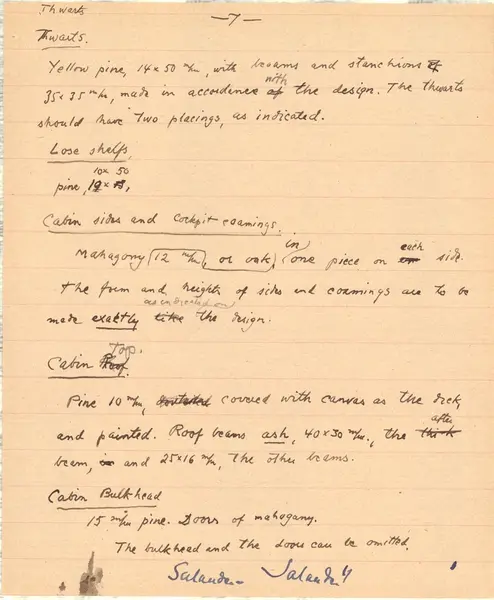 Thwarts
—7—
Thwarts.
Yellow pine, 14 x 50 m/m, with beoams and stanchions of
with
35 x 35 m/m, made in accordence of the design. The thwarts
should have two placings, as indicated.
Lose shelfs,
10 x 50
pine,
Cabin sides and cockpit coamings.
in each
Mahogony (12 m/m), or oak, one piece on side.
The form and heights of sides and coamings are to be
as indicated on
made exactly like the design.
Top.
Cabin Roof.
Pine 10 m/m, covered with canvas as the deck,
after
and painted. Roof beams ash, 40 x 30 m/m., the
beam, and 25 x 16 m/m, the other beams.
Cabin Bulkhead
15 m/m pine. Doors of mahogany.
The bulkhead and the doors can be omitted.